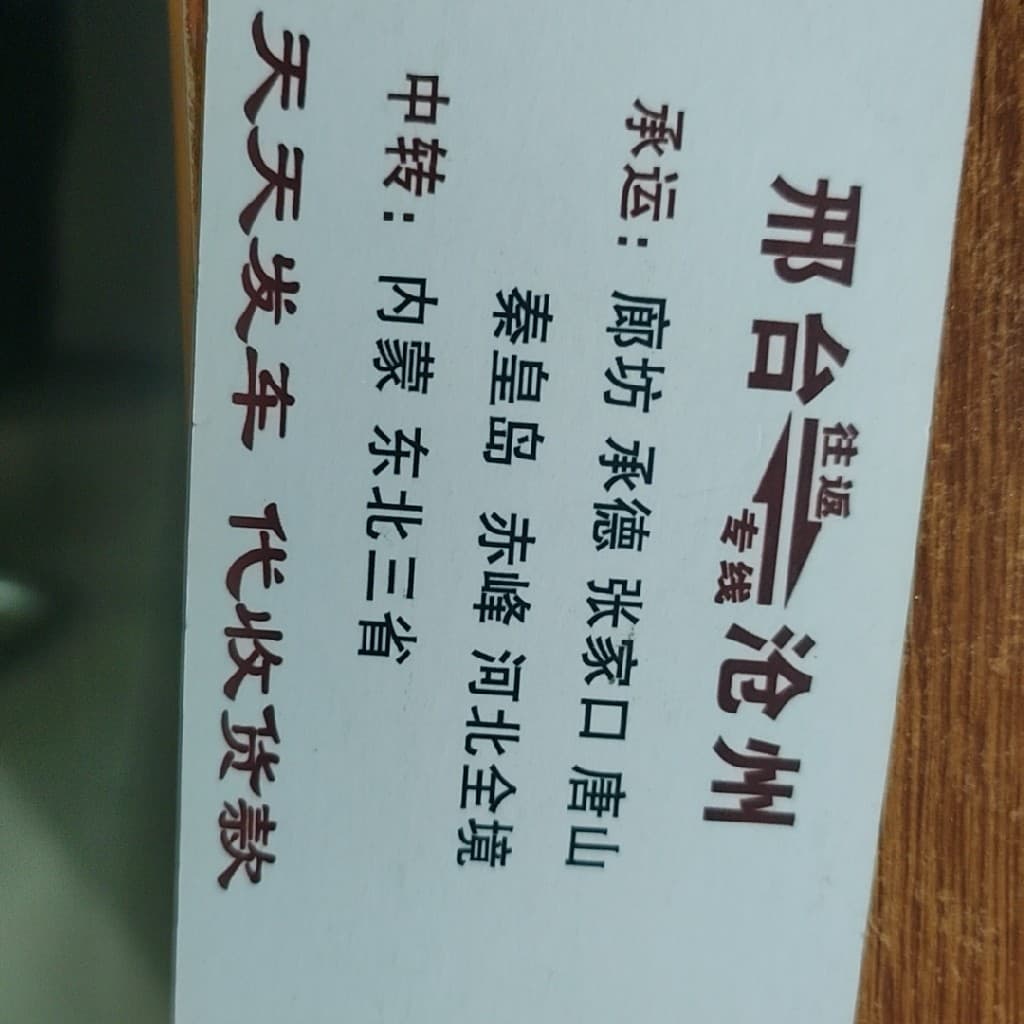 邢台 往返专线 沧州
承运：廊坊 承德 张家口 唐山
秦皇岛 赤峰 河北全境
中转：内蒙 东北三省
天天发车 代收货款